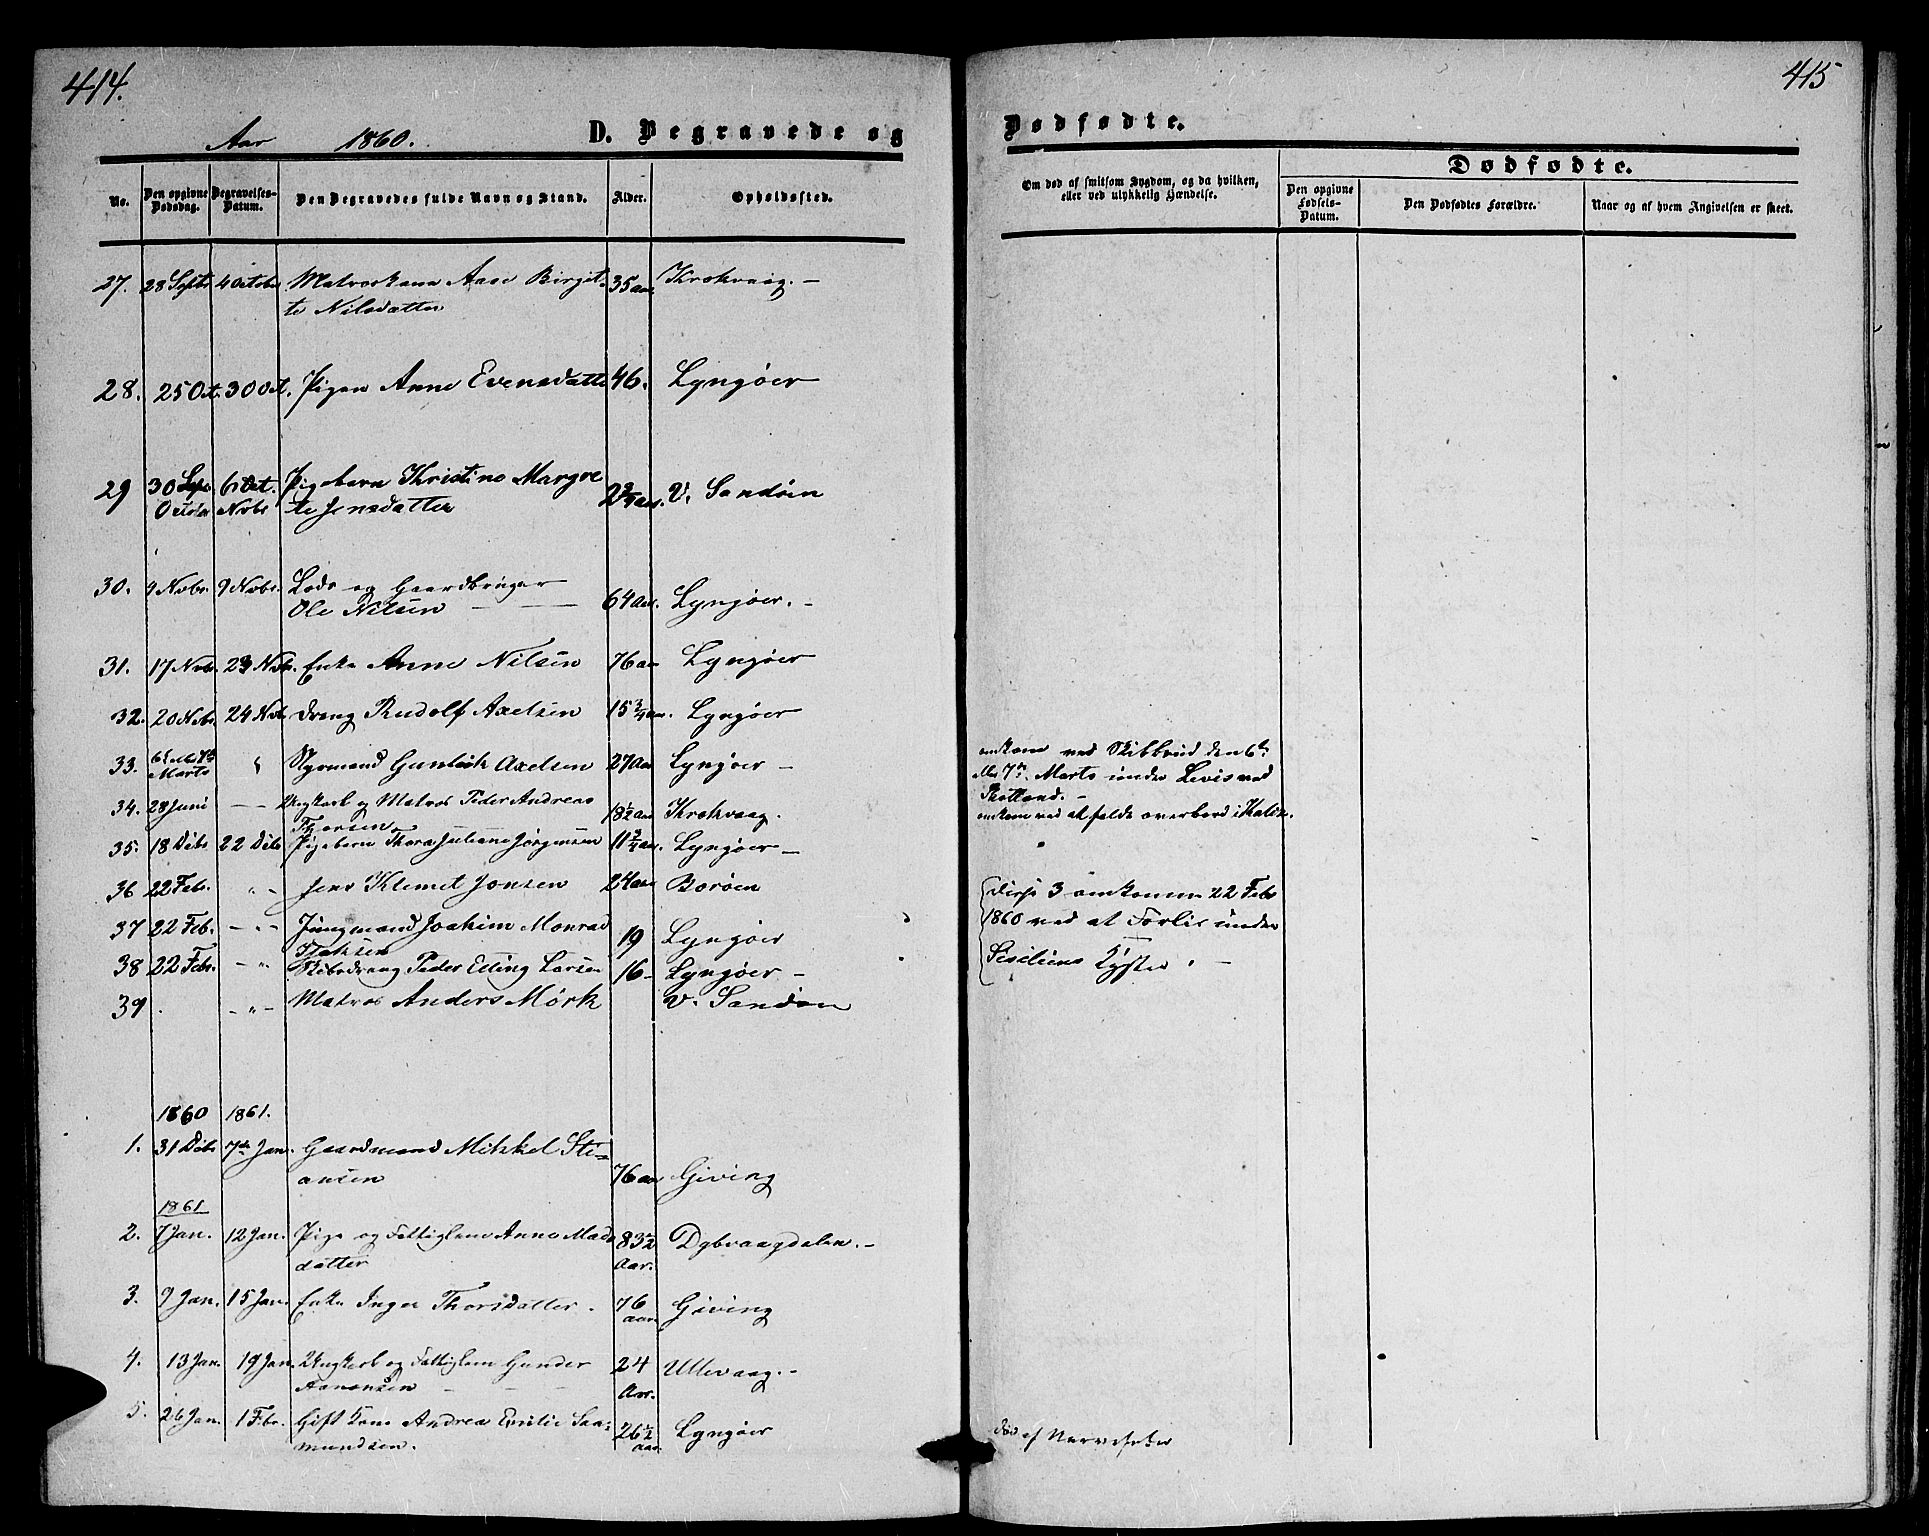 414.
Aar 1860. D. Begravede og
No. Den opgivne Dødsdag. Begravelses-Datum. Den Begravedes fulde Navn og Stand. Alder. Opholdssted.
27. 28 Septr 4 Octobr Matroskone Aase Birgit- 35 aar Krokvaag. -
te Nilsdatter
28. 25 Oct. 30 Oct. Pigen Anne Evensdatter 46. Lyngøer
29 30 6 Pigebarn Kristine Margre 2¾ aar. V. Sandøen
October Novbr te Jensdatter
30. 4 Novbr. 9 Novbr. Lods og Gaardbruger
Ole Nilsen 64 aar. Lyngøer. -
31. 17 Novbr. 23 Novbr. Enke Anne Nilsen 76 aar Lyngøer
32. 20 Novbr. 24 Novbr. Dreng Rudolf Axelsen 15¾ aar. Lyngøer
33. Marts " Styrmand Gunleik Axelsen 27 Aar Lyngøer -
34. 28 Juni - - Ungkarl og Matros Peder Andreas 18½ aar Krokvaag.
Thorsen
35. 18 Debr 22 Debr Pigebarn Thora Juliane Jørgensen 11¾ aar. Lyngøer -
36 22 Febr. " - Jens Klemet Jonsen 24 aar Borøen
37 22 Feb. - " - Jungmand Joakim Monrad 19 Lyngøer
38 22 Febr. - " Skibsdreng Peder Elling Larsen 16 - Lyngøer -
39 . - " - Matros Anders Mörk V. Sandøen
1860 1861.
1. 31 Debr 7de Jan. Gaardmand Mikkel Sti-
ansen 76 aar Giving
1861
2. 7 Jan. 12 Jan. Pige og Fattiglem Anne Mads 83½ Dybvaagdalen. -
datter Aar.
3. 9 Jan. 15 Jan. Enke Inger Thorsdatter. 76 Giving
aar
4. 13 Jan. 19 Jan. Ungkarl og Fattiglem Gunder 24 Ullevaag. -
Aanonsen - - - Aar.
5. 26 Jan. 1 Febr. Gift Kone Andrea Emilie Saa- 26½ Lyngøer
mundsen. aar
415
Dødfødte.
Om død af smitsom Sygdom, og da hvilken, eller ved ulykkelig Hændelse.
Dødfødte.
Den opgivne Fødsels-Datum. Den Dødfødtes Forældre. Naar og af hvem Angivelsen er skeet.
omkom ved Skibbrud den 6te
eller 7de Marts under Levis ved
Skotland. -
omkom ved at falde overbord i
disse 3 omkommer 22 Feb
1860 ved at Forlis under
Siciliens Kyster. -
død af Nervefeber